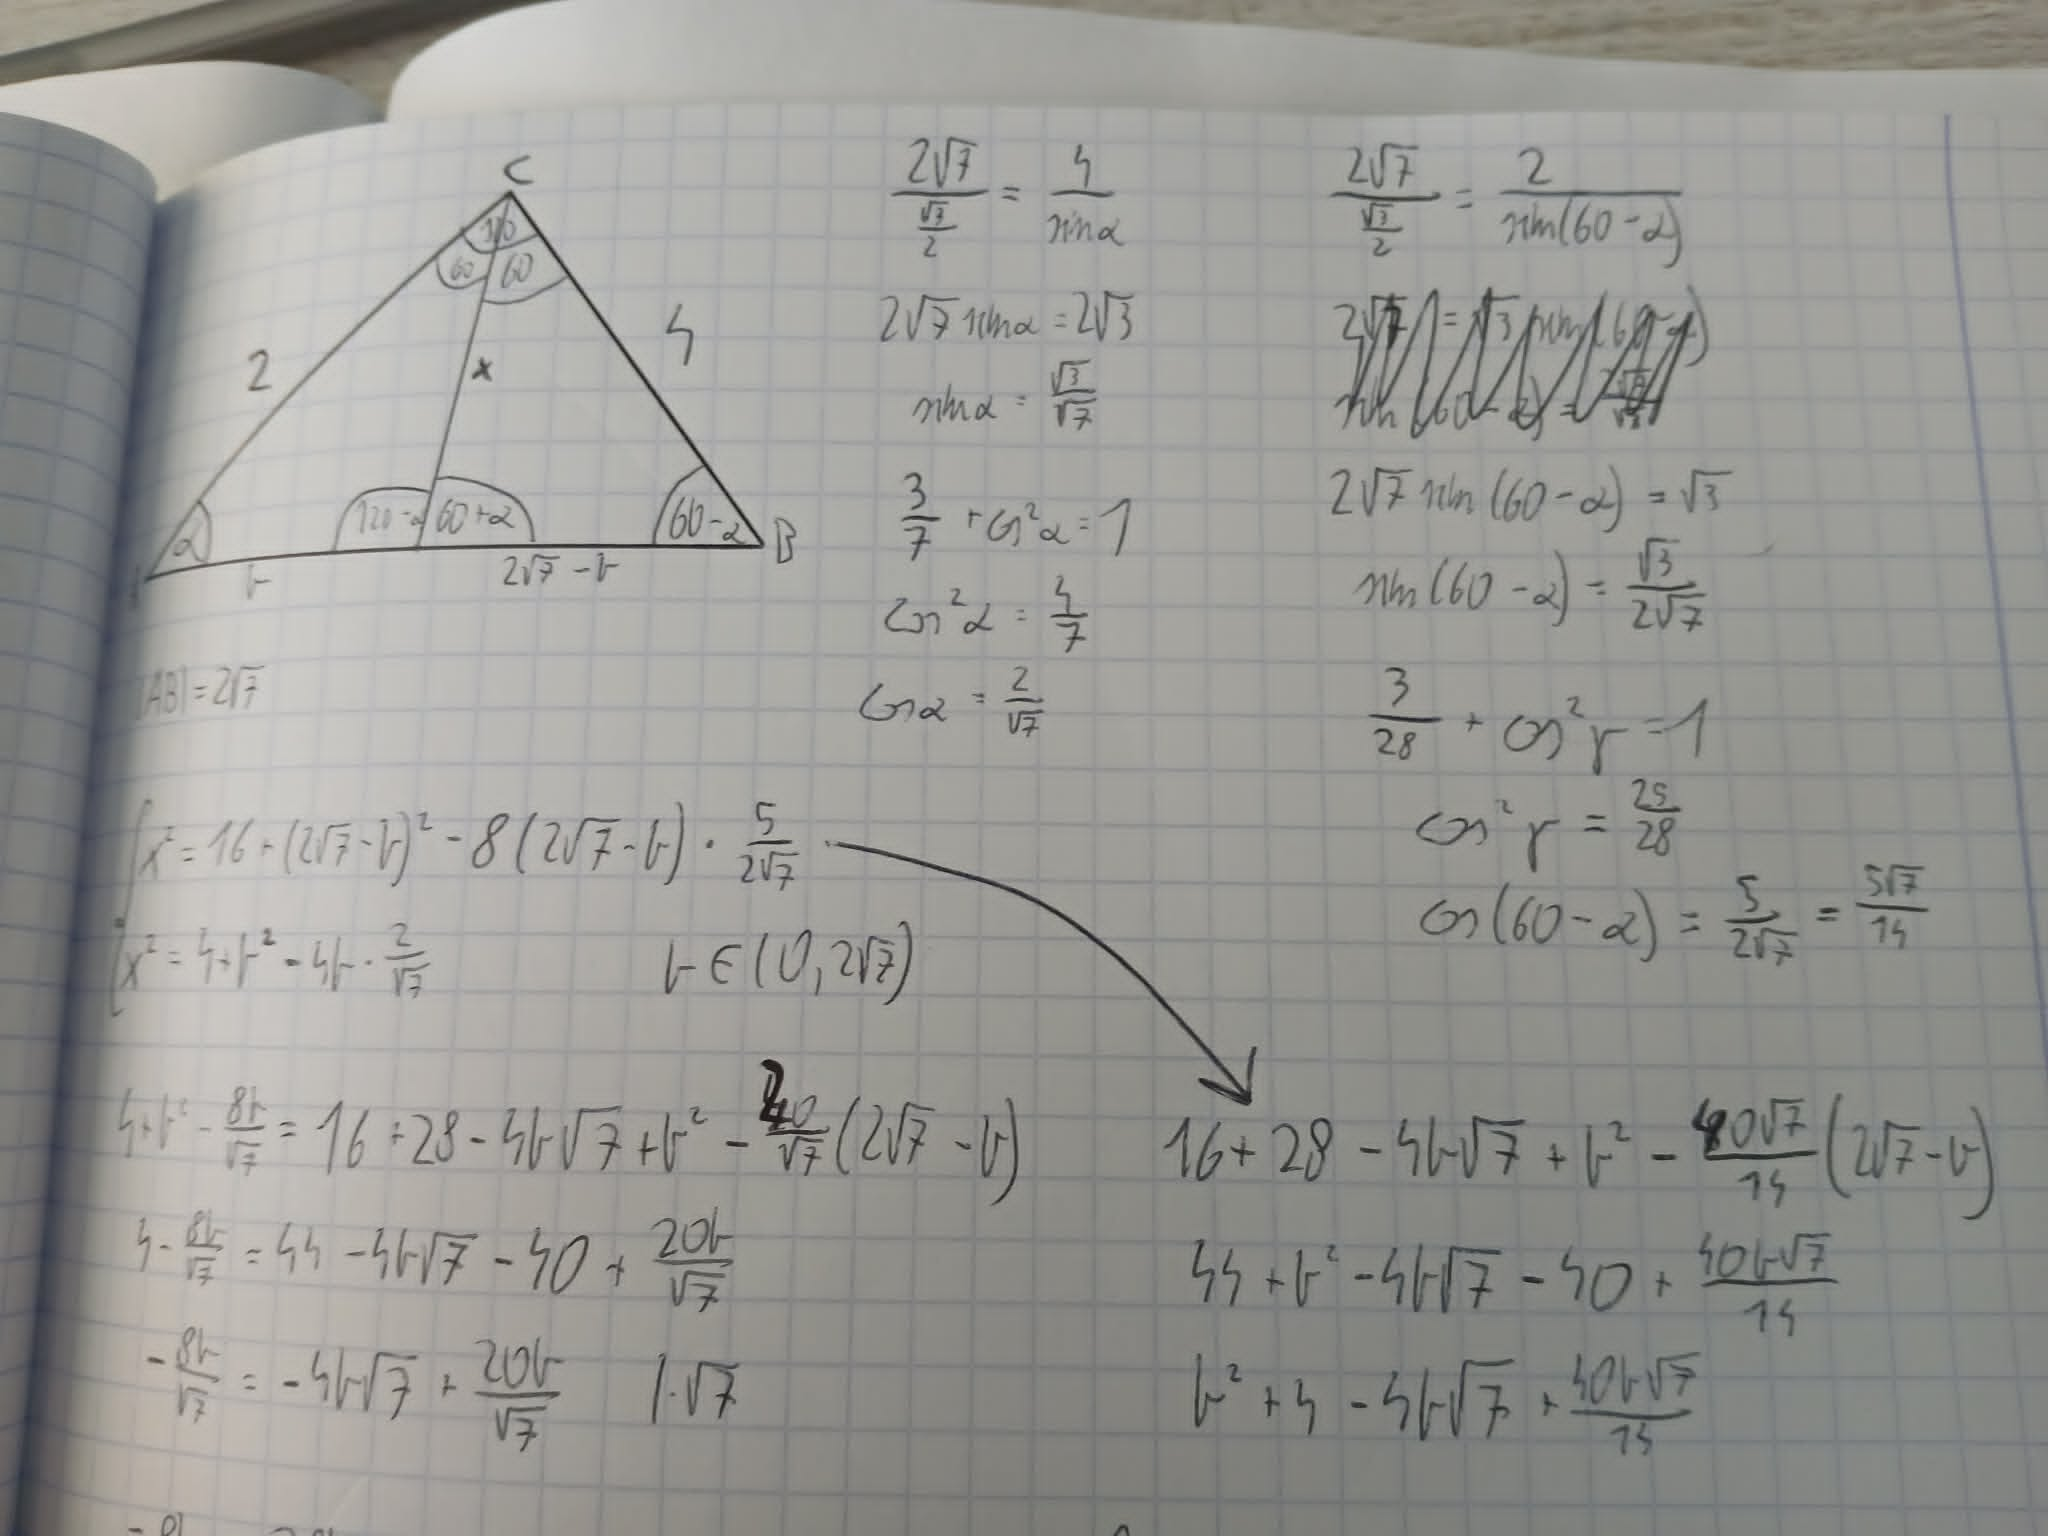 C
120
60 60
2 4
x
α 120-α 60+α 60-α B
b 2√7 - b
|AB| = 2√7
2√7 / (√3/2) = 4 / sinα
2√7 sinα = 2√3
sinα = √3/√7
3/7 + cos²α = 1
cos²α = 4/7
cosα = 2/√7
2√7 / (√3/2) = 2 / sin(60-α)
2√7 sin(60-α) = √3
sin(60-α) = √3 / 2√7
3/28 + cos²γ = 1
cos²γ = 25/28
cos(60-α) = 5/2√7 = 5√7/14
x² = 16 + (2√7 - b)² - 8(2√7 - b) · 5/2√7
x² = 4 + b² - 4b · 2/√7 b ∈ (0, 2√7)
4 + b² - 8b/√7 = 16 + 28 - 4b√7 + b² - 20/√7 (2√7 - b)
4 - 8b/√7 = 44 - 4b√7 - 40 + 20b/√7
-8b/√7 = -4b√7 + 20b/√7 /·√7
16 + 28 - 4b√7 + b² - 40√7/14 (2√7 - b)
44 + b² - 4b√7 - 40 + 40b√7/14
b² + 4 - 4b√7 + 40b√7/14